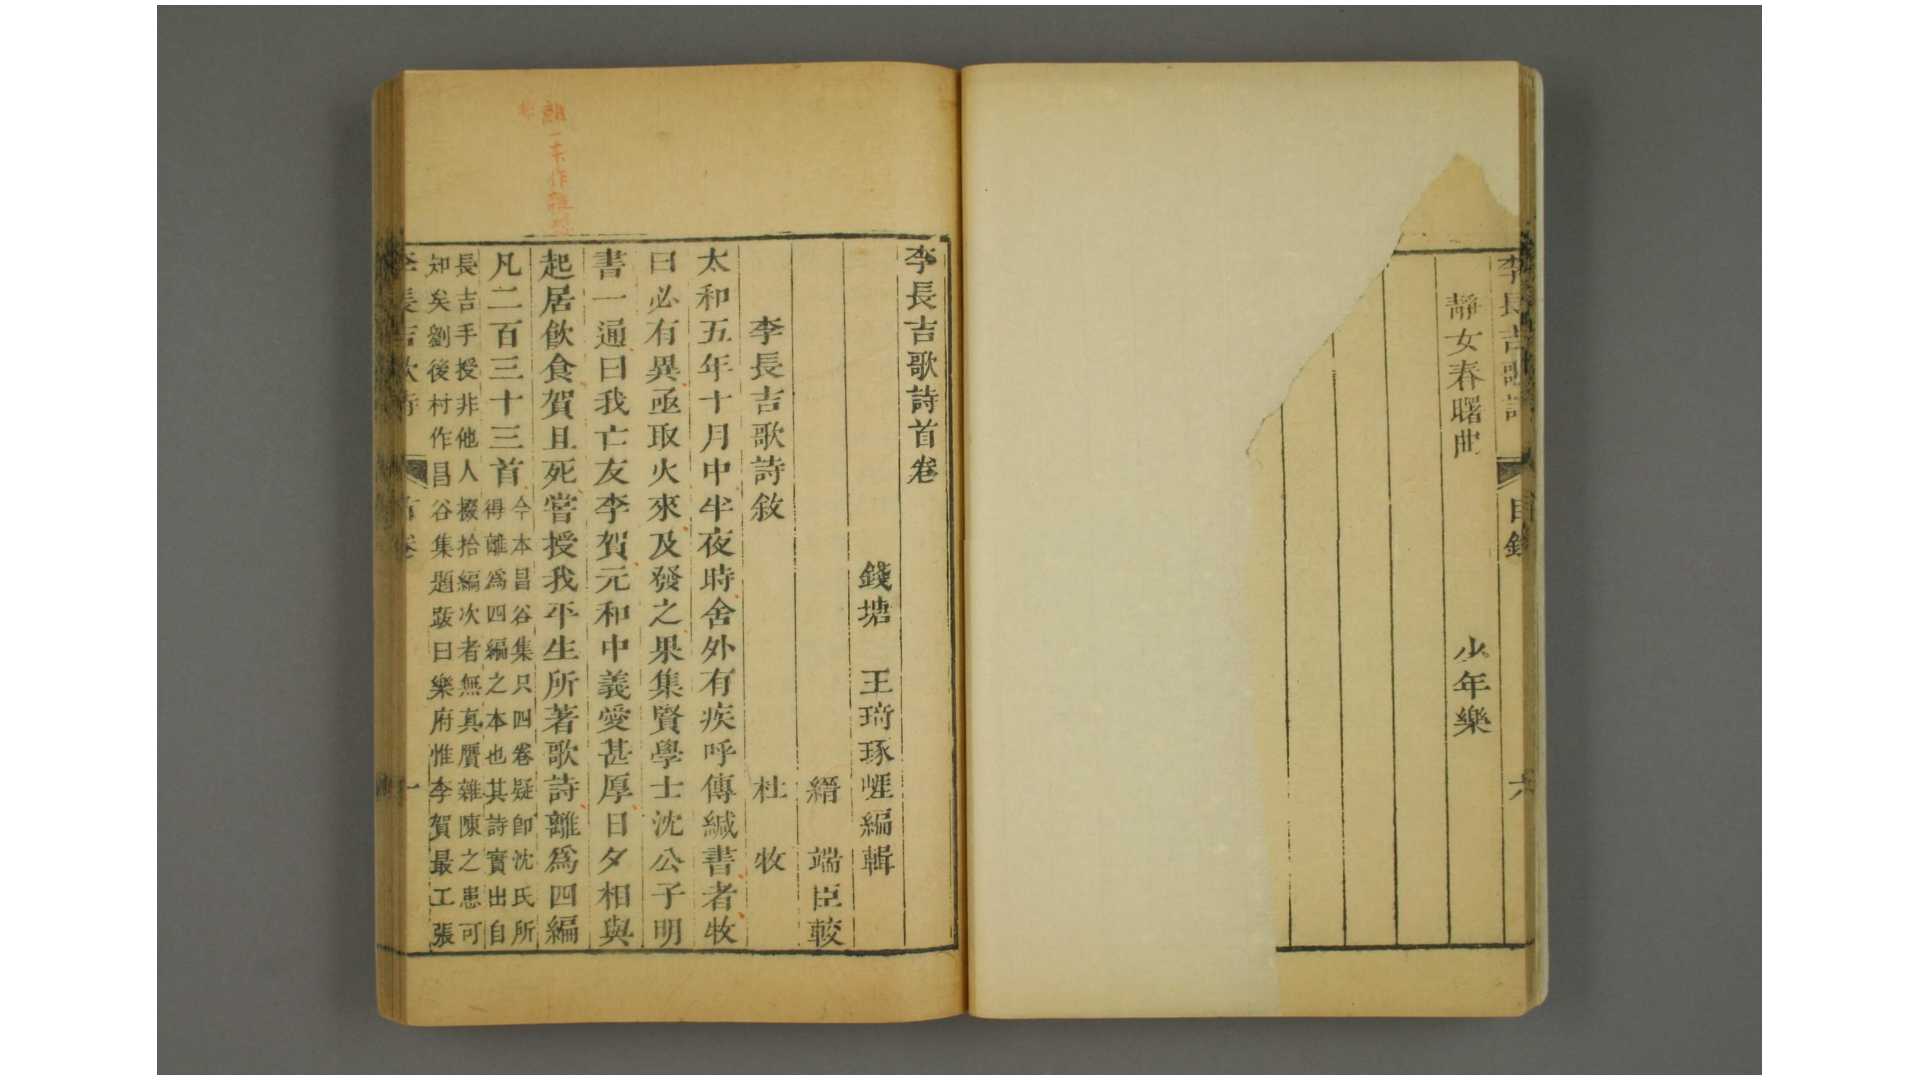 靜女春曙曲 少年樂
李長吉歌詩 目錄 六
李長吉歌詩首卷
錢塘 王琦琢崕編輯
縉 端臣較
李長吉歌詩敘 杜牧
太和五年十月中半夜時舍外有疾呼傳緘書者牧
曰必有異亟取火來及發之果集賢學士沈公子明
書一通曰我亡友李賀元和中義愛甚厚日夕相與
起居飲食賀且死嘗授我平生所著歌詩離爲四編
凡二百三十三首
今本昌谷集只四卷疑卽沈氏所
得離爲四編之本也其詩實出自
長吉手授非他人掇拾編次者無真贋雜陳之患可
知矣劉後村作昌谷集題跋曰樂府惟李賀最工張
李長吉歌詩 首卷 一